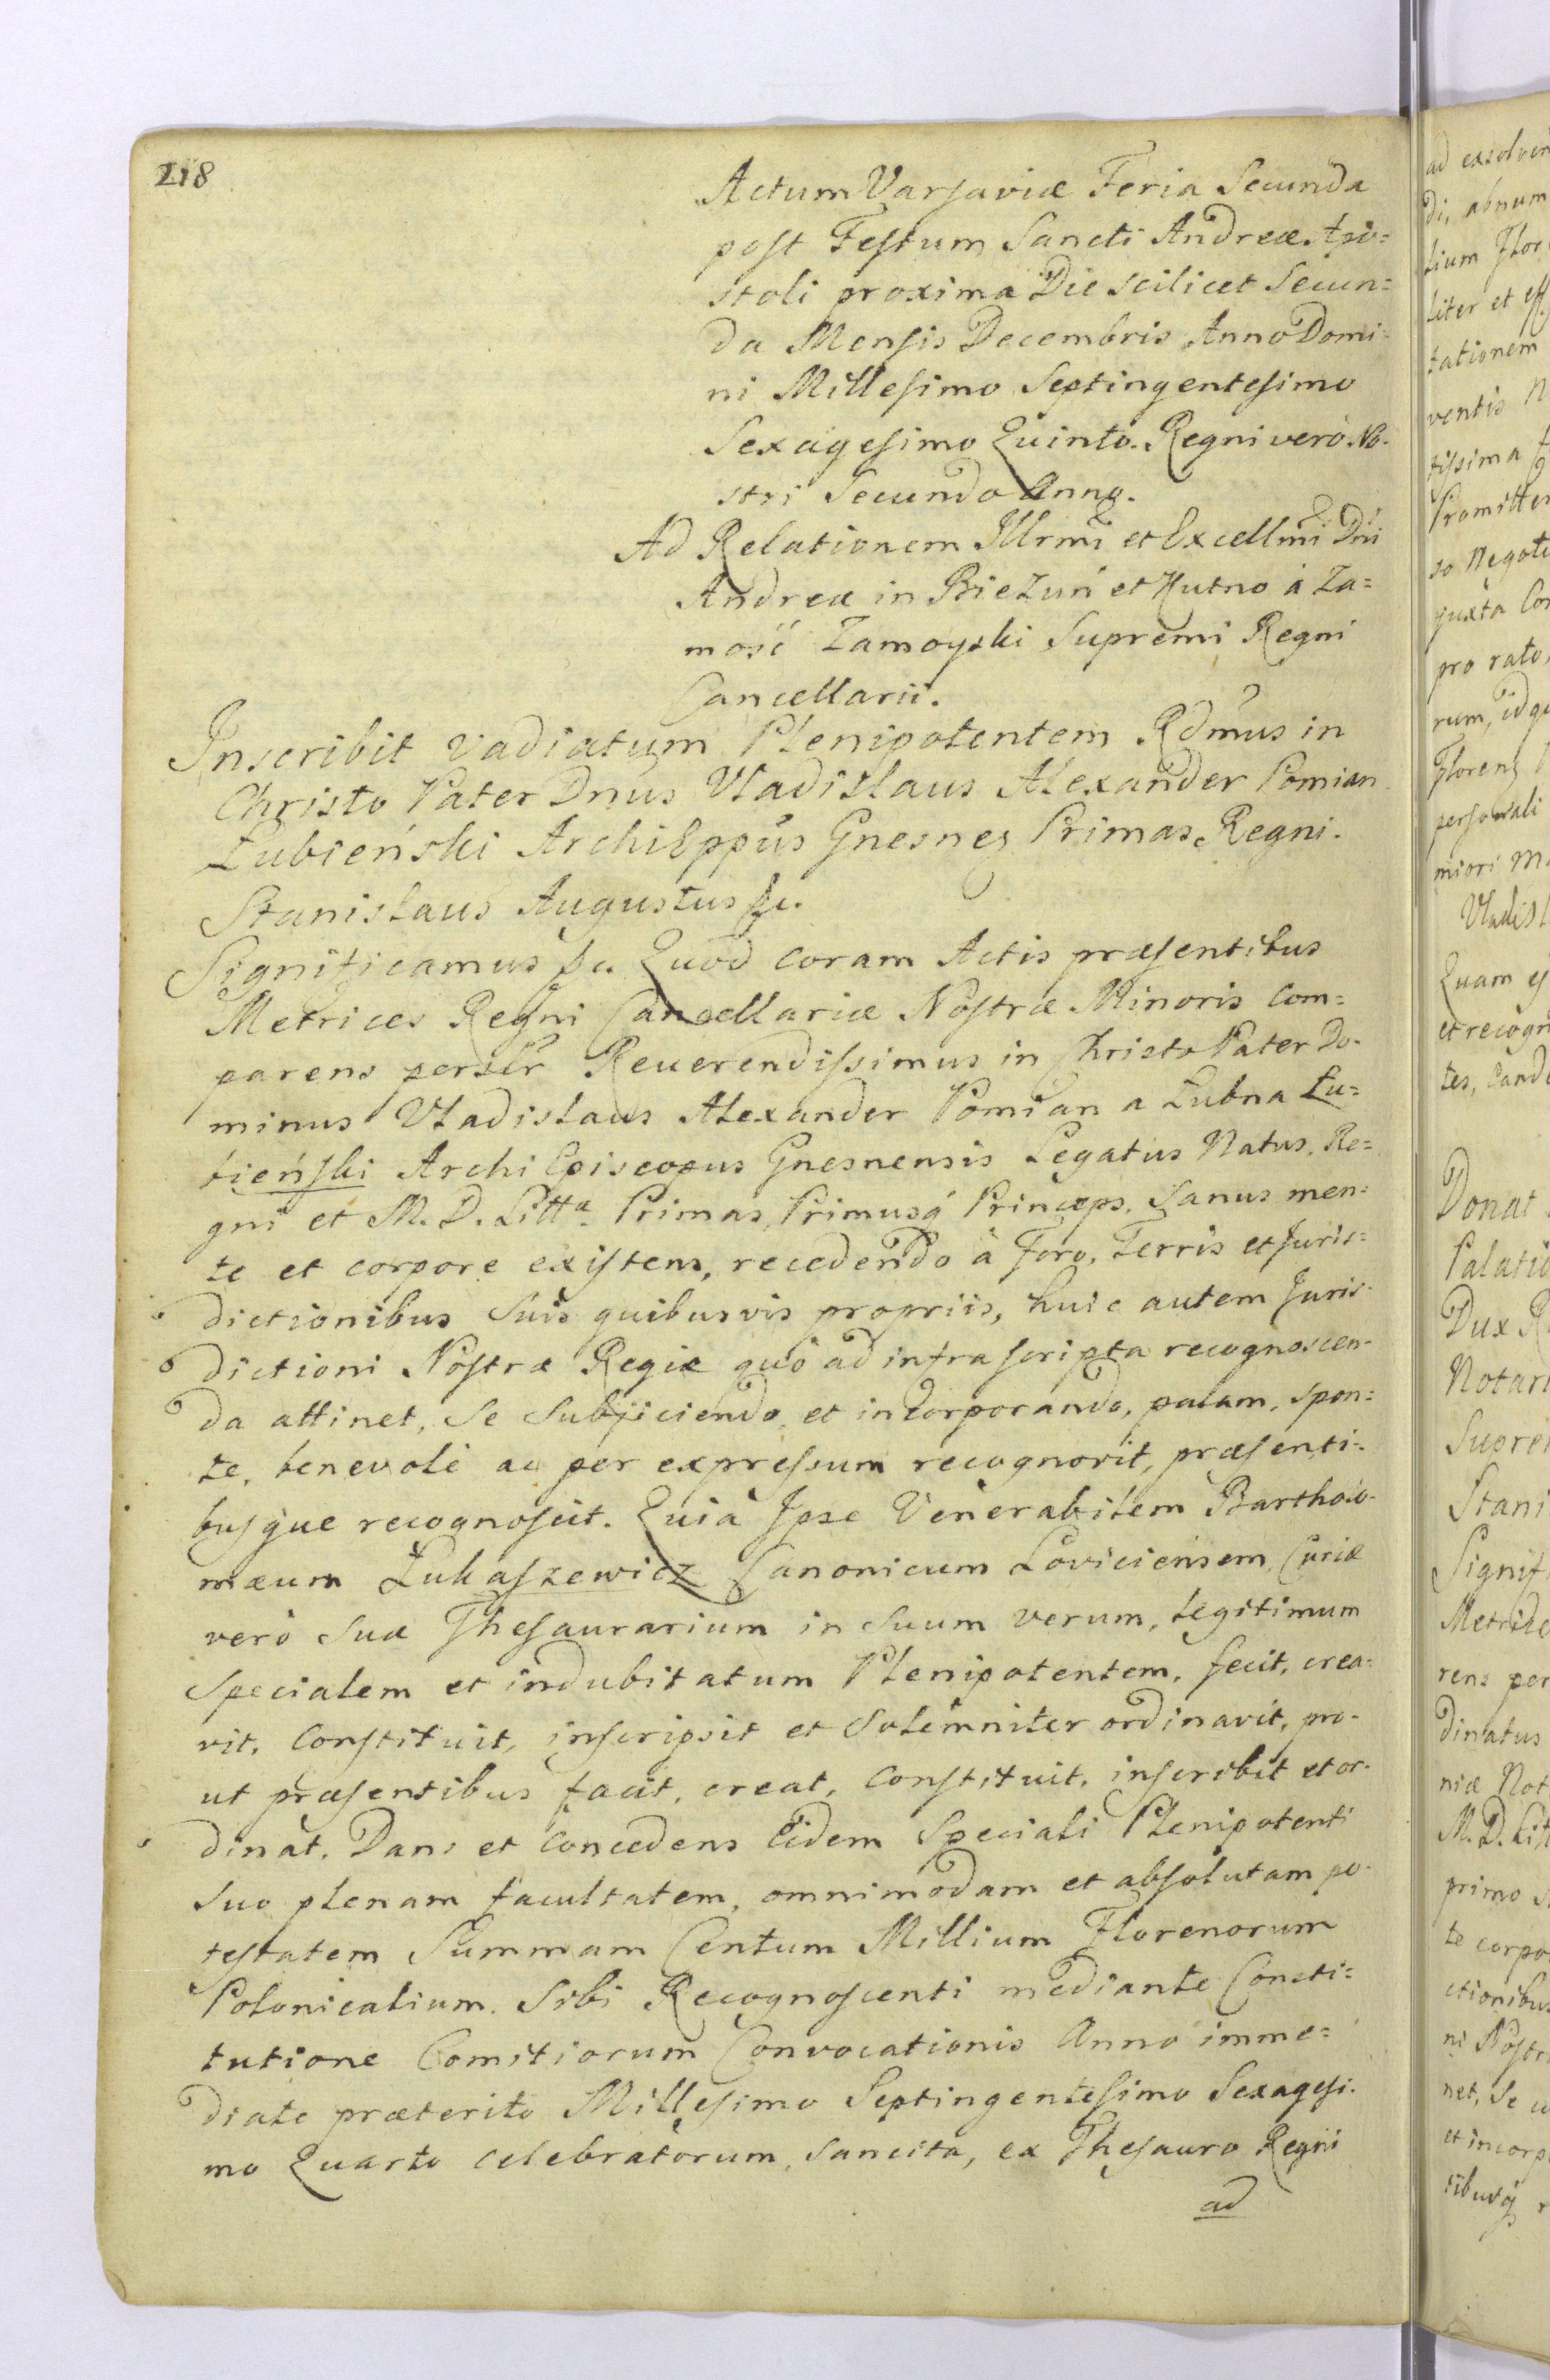 218
Actum Varsaviæ Feria Secunda
post Festum Sancti Andreæ Apo=
stoli proxima Die scilicet Secun=
da Mensis Decembris Anno Domi=
ni Millesimo Septingentesimo
Sexagesimo Quinto. Regni verò No-
stri Secundo Anno.
Ad Relationem Illrmi et Excellmi Dni
Andreæ in Bieżuń et Kutno à Za=
mość Zamoyski Supremi Regni
Cancellarii.
Inscribit vadiatum Plenipotentem Rdmus in
Christo Pater Dnus Vladislaus Alexander Pomian
Łubieński ArchiEppus Gnesnes Primas Regni.
Stanislaus Augustus &c.
Significamus &c. Quod coram Actis præsentibus
Metrices Regni Cancellariæ Nostræ Minoris com=
parens persłr Reverendissimus in Christo Pater Do-
minus Vladislaus Alexander Pomian a Łubna Łu=
bieński Archi Episcopus Gnesnensis Legatus Natus, Re=
gni et M. D. Litta Primas, Primusq́ Princeps, Sanus men=
te et corpore existens, recedendo à Foro, Terris et Juris=
dictionibus Suis quibusvis propriis, huic autem Juris-
dictioni Nostræ Regiæ quò ad infra scripta recognoscen-
da attinet, se subjiciendo et incorporando, palam, spon=
te, benevolè ac per expressum recognovit, præsenti=
busque recognoscit. Quia Ipse Venerabilem Bartholo-
mæum Łukaszewicz Canonicum Loviciensem, Curiæ
verò Suæ Thesaurarium in Suum verum, legitimum
Specialem et indubitatum Plenipotentem, fecit, crea=
vit, constituit, inscripsit et Solemniter ordinavit, pro-
ut præsentibus facit, creat, constituit, inscribit et or-
dinat. Dans et concedens Eidem Speciali Plenipotenti
Suo plenam facultatem, omnimodam et absolutam po-
testatem Summam Centum Millium Florenorum
Polonicalium. Sibi Recognoscenti mediante Consti=
tutione Comitiorum Convocationis Anno imme=
diate præterito Millesimo Septingentesimo Sexagesi-
mo Quarto celebratorum, sancita, ex Thesauro Regni
ad
ad exsolven
di, abnum
lium Flor
liter et eff
tationem
ventis N
tissima f
Promitten
so Negoti
juxta Con
pro rato,
rum, idq
Floren
personali
miori M
Vladisl
Quam ej
et recogn
tes, Eand
Donat
Palatin
Dux R
Notari
Supre
Stani
Signif
Metrice
rens per
dinatus
niæ Not
M. D. Lit
primo
te corpo
ctionibus
ni Nostr
net, Se
et incorp
tibusq́